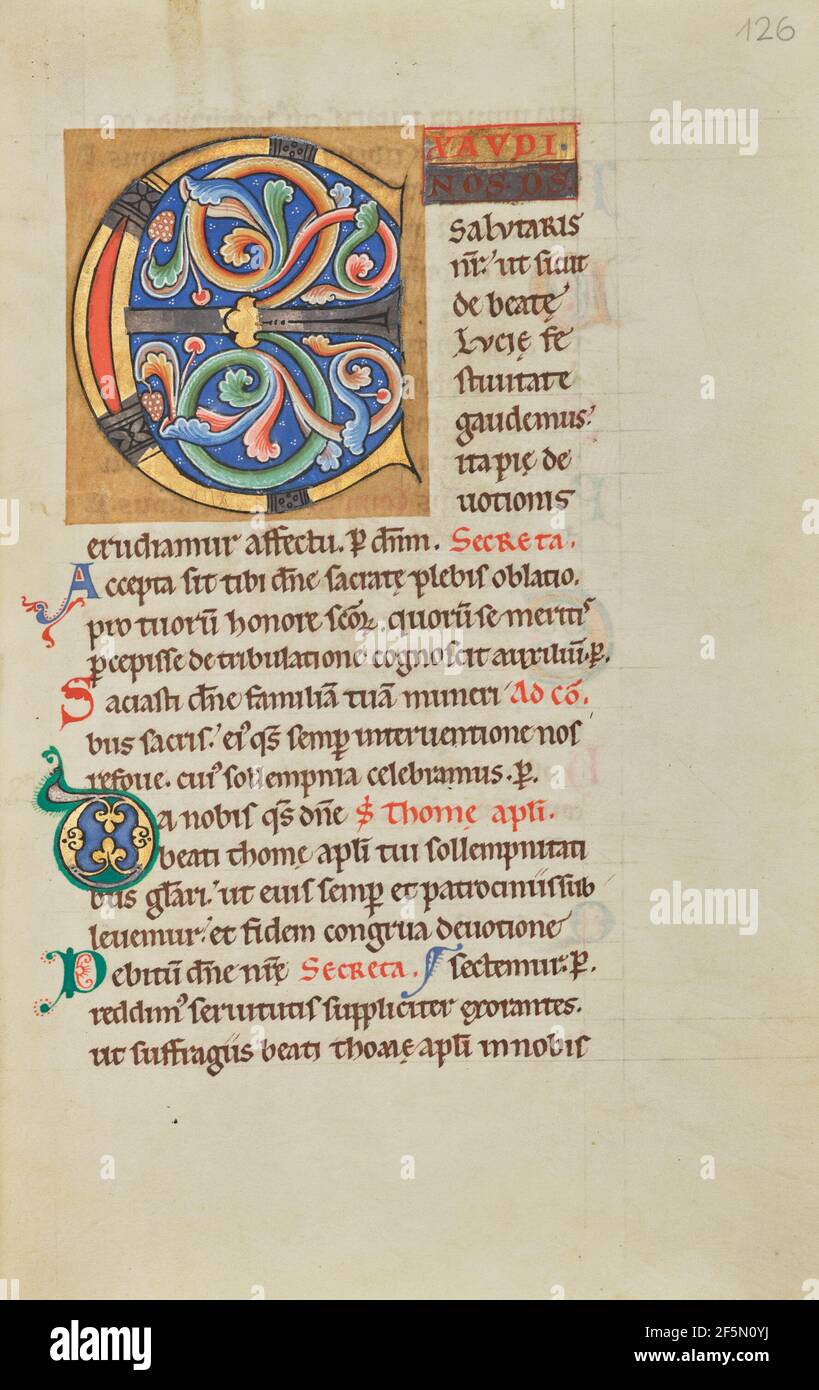 126
EXAVDI
NOS·DS
salvtaris
nr̄. ut sicut
de beatę
Lvcię fe
stiuitate
gaudemus.
ita pię de
uotionis
erudiamur affectu. p̄ dn̄m. Secreta.
Accepta sit tibi dn̄e sacratę plebis oblatio.
pro tuorū honore sc̄oꝝ. quorū se meritis
ꝑcepisse de tribulatione cognoscit auxiliū. p̄.
Saciasti dn̄e familiā tuā muneri Ad cō.
bus sacris. eiꝰ qs̄ semꝑ interuentione nos
refoue. cuiꝰ sollempnia celebramus. p̄.
Da nobis qs̄ dn̄e S Thomę apli.
beati thomę apli tui sollempnitati
bus glāri. ut eius semꝑ et patrociniis sub
leuemur. et fidem congrua deuotione
Debitū dn̄e nr̄ę Secreta. sectemur. p̄.
reddimꝰ seruitutis suppliciter exorantes.
ut suffragiis beati thomę apli in nobis
alamy
alamy
alamy
alamy
alamy
alamy
Image ID: 2F5N0YJ
www.alamy.com